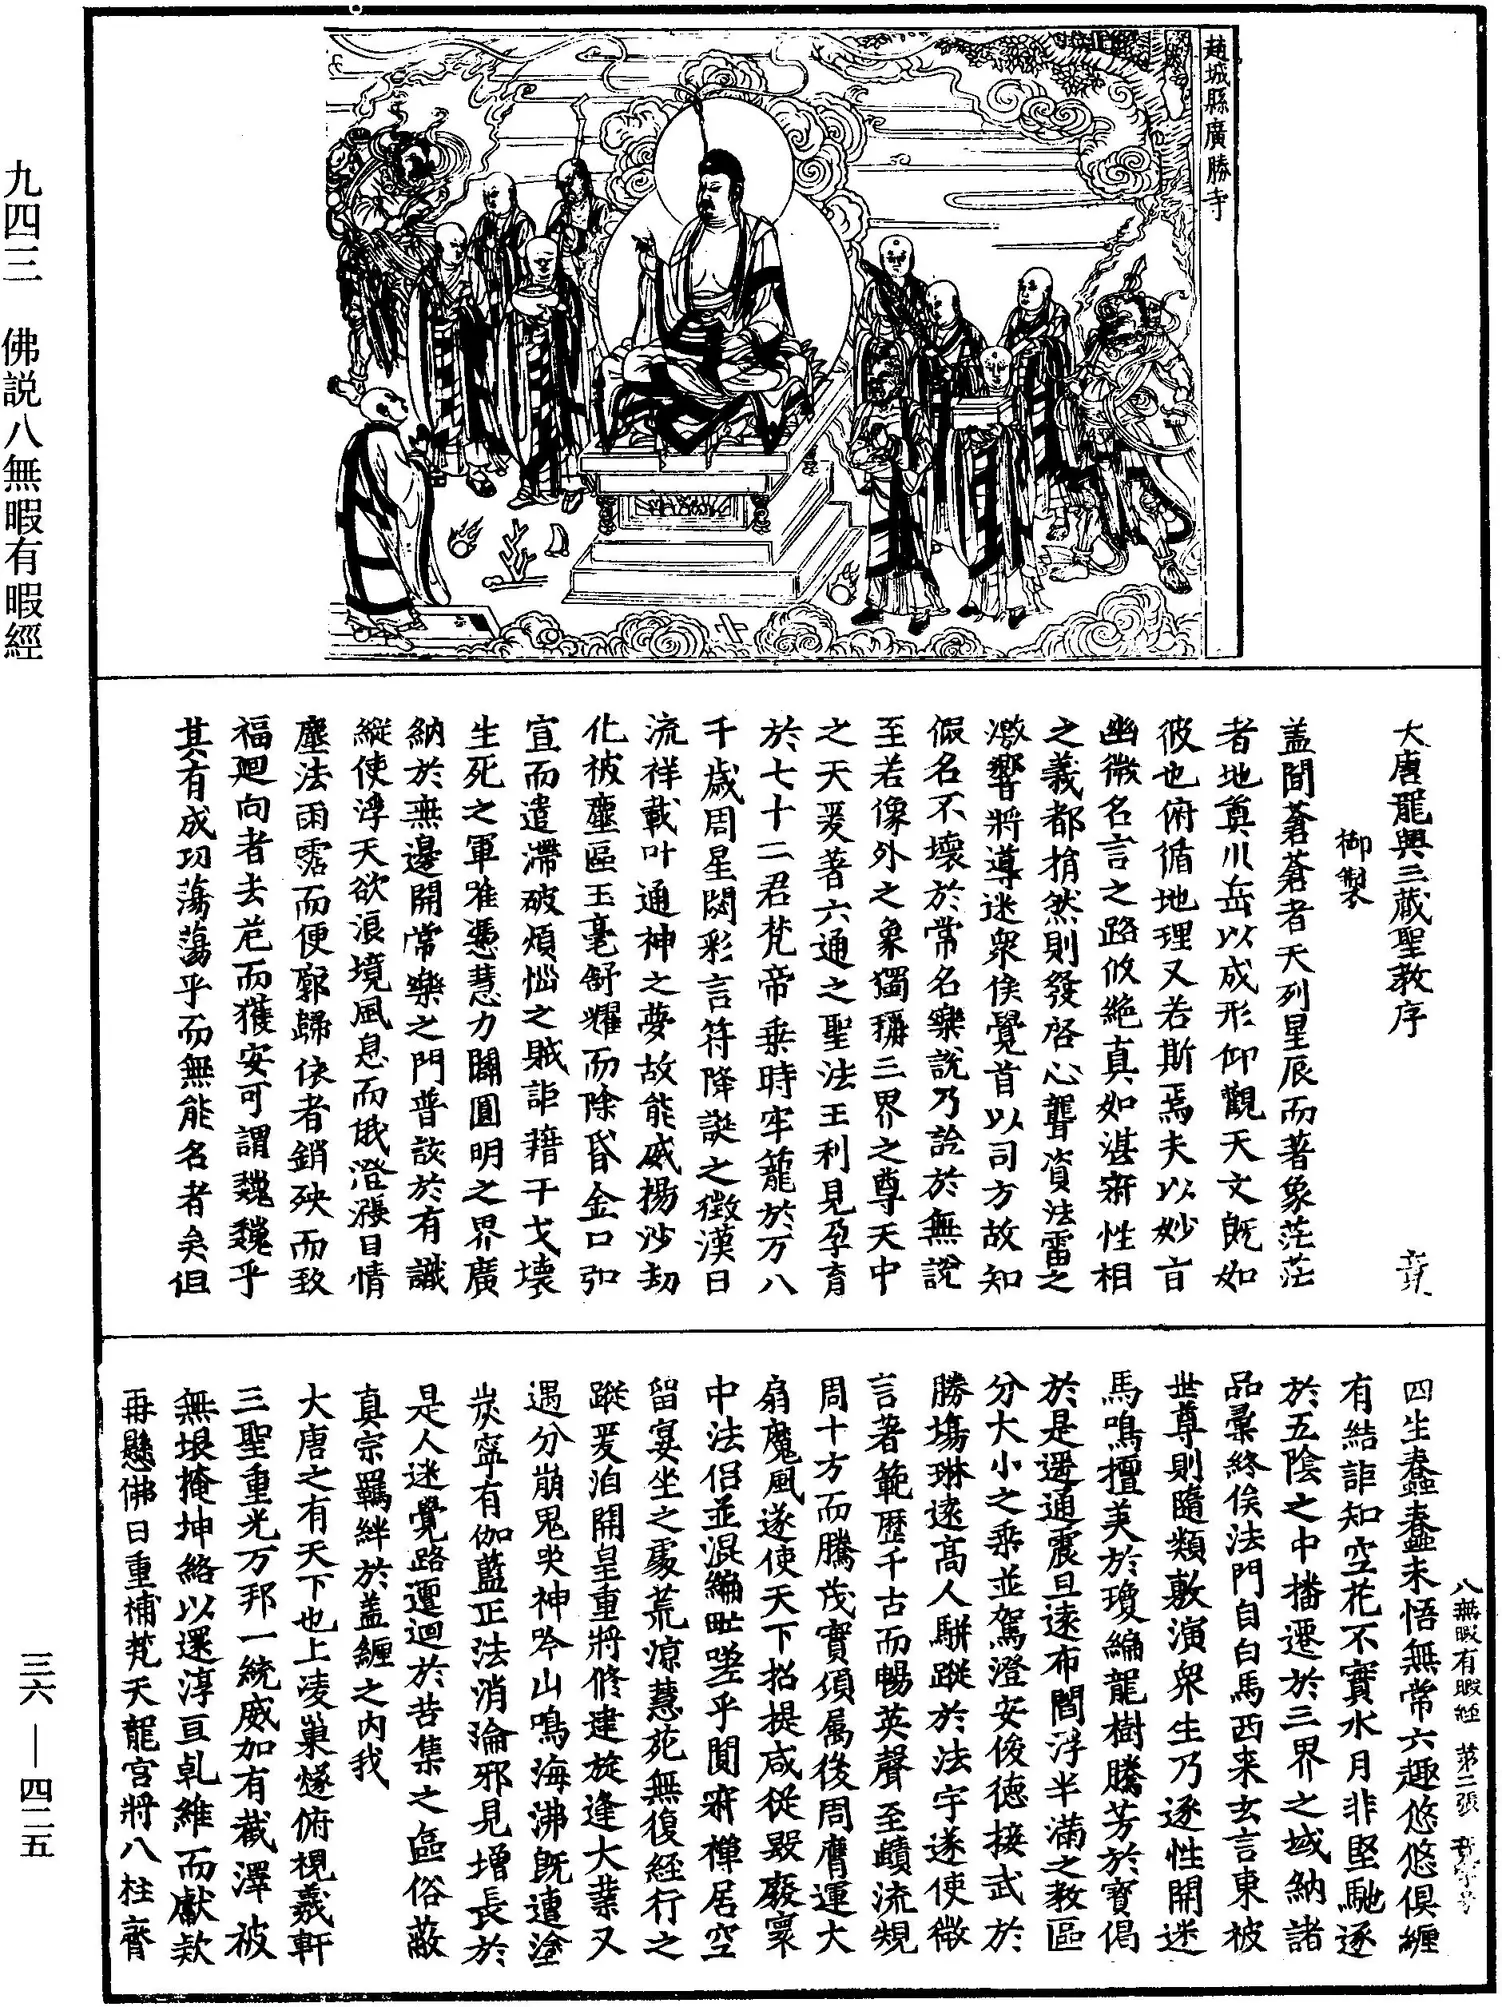 趙城縣廣勝寺
大唐龍興三藏聖教序
御製
蓋聞蒼蒼者天列星辰而著象茫茫
者地奠川岳以成形仰觀天文既如
彼也俯循地理又若斯焉夫以妙旨
幽微名言之路攸絕真如湛寂性相
之義都捐然則發啓心聾資法雷之
激響將導迷衆俟覺首以司方故知
假名不壞於常名樂說乃詮於無說
至若像外之象獨稱三界之尊天中
之天爰著六通之聖法王利見孕育
於七十二君梵帝乘時牢籠於万八
千歲周星閟彩言符降誕之徵漢日
流祥載叶通神之夢故能威揚沙劫
化被塵區玉毫舒耀而除昏金口弘
宣而遣滯破煩惱之賊詎藉干戈壞
生死之軍唯憑慧力闢圓明之界廣
納於無邊開常樂之門普該於有識
縱使浮天欲浪境風息而俄澄漲日情
塵法雨霑而便廓歸依者銷殃而致
福迴向者去危而獲安可謂巍巍乎
其有成功蕩蕩乎而無能名者矣但
八無暇有暇經 第二張
四生蠢蠢未悟無常六趣悠悠俱纏
有結詎知空花不實水月非堅馳逐
於五陰之中播遷於三界之域納諸
品彙終俟法門自白馬西来玄言東被
世尊則隨類敷演衆生乃逐性開迷
馬鳴擅美於瓊編龍樹騰芳於寶偈
於是遥通震旦遠布閻浮半滿之教區
分大小之乘並駕澄安俊德接武於
勝場琳遠高人駢蹤於法宇遂使微
言著範歷千古而暢英聲至賾流規
周十方而騰茂實傾属後周膺運大
扇魔風遂使天下招提咸從毀廢寰
中法侣並混編甿嗟乎閴寂禪居空
留宴坐之處荒凉慧苑無復経行之
蹤爰洎開皇重將修建旋逢大業又
遇分崩鬼哭神吟山鳴海沸既遭塗
炭寧有伽藍正法消淪邪見増長於
是人迷覺路邅迴於苦集之區俗蔽
真宗羈絆於蓋纏之内我
大唐之有天下也上凌巢燧俯視羲軒
三聖重光万邦一統威加有截澤被
無垠掩坤絡以還淳亘乹維而獻款
再懸佛日重補梵天龍宮將八柱齊
九四三　佛説八無暇有暇經
三六 — 四二五